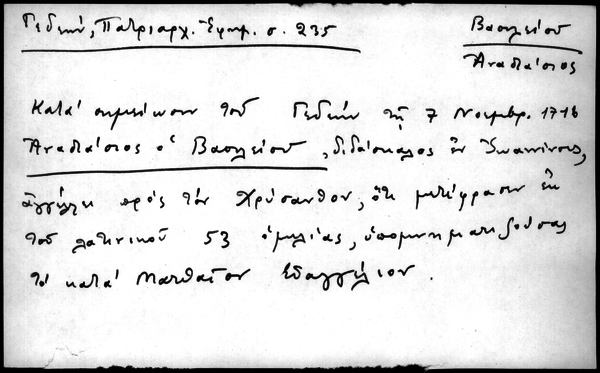 Γεδεών, Πατριαρχ. Ἐφημ. σ. 235
Βασιλείου
Ἀναστάσιος
Κατά σημείωσιν τοῦ Γεδεών τῇ 7 Νοεμβρ. 1716
Ἀναστάσιος ὁ Βασιλείου, διδάσκαλος ἐν Ἰωαννίνοις,
ἀγγέλλει πρός τόν Χρύσανθον, ὅτι μετέφρασεν ἐκ
τοῦ λατινικοῦ 53 ὁμιλίας, ὑπομνηματιζούσας
τό κατά Ματθαῖον Εὐαγγέλιον.